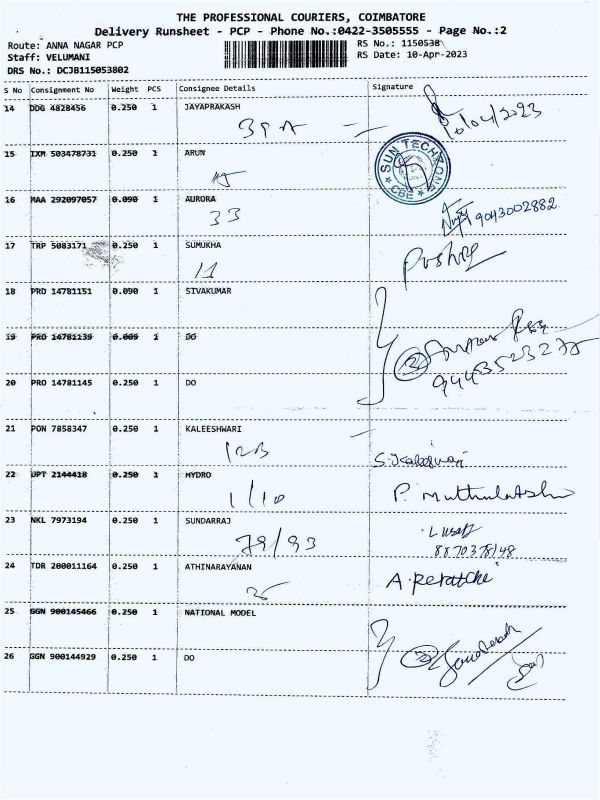 THE PROFESSIONAL COURIERS, COIMBATORE
Delivery Runsheet - PCP - Phone No.:0422-3505555 - Page No.:2
Route: ANNA NAGAR PCP
RS No.: 1150538
Staff: VELUMANI
RS Date: 10-Apr-2023
DRS No.: DCJB115053802
S No Consignment No Weight PCS Consignee Details Signature
14 DDG 4828456 0.250 1 JAYAPRAKASH
39A
10/04/2023
15 IXM 503478731 0.250 1 ARUN
15
SUN TECHZONE
CBE
16 MAA 292097057 0.090 1 AURORA
33
9043002882
17 TRP 5083171 0.250 1 SUMUKHA
11
18 PRO 14781151 0.090 1 SIVAKUMAR
19 PRO 14781139 0.009 1 DO
20 PRO 14781145 0.250 1 DO
21 PON 7858347 0.250 1 KALEESHWARI
12B
22 UPT 2144418 0.250 1 HYDRO
1/10
23 NKL 7973194 0.250 1 SUNDARRAJ
79/93
24 TDR 200011164 0.250 1 ATHINARAYANAN
25 GGN 900145466 0.250 1 NATIONAL MODEL
26 GGN 900144929 0.250 1 DO